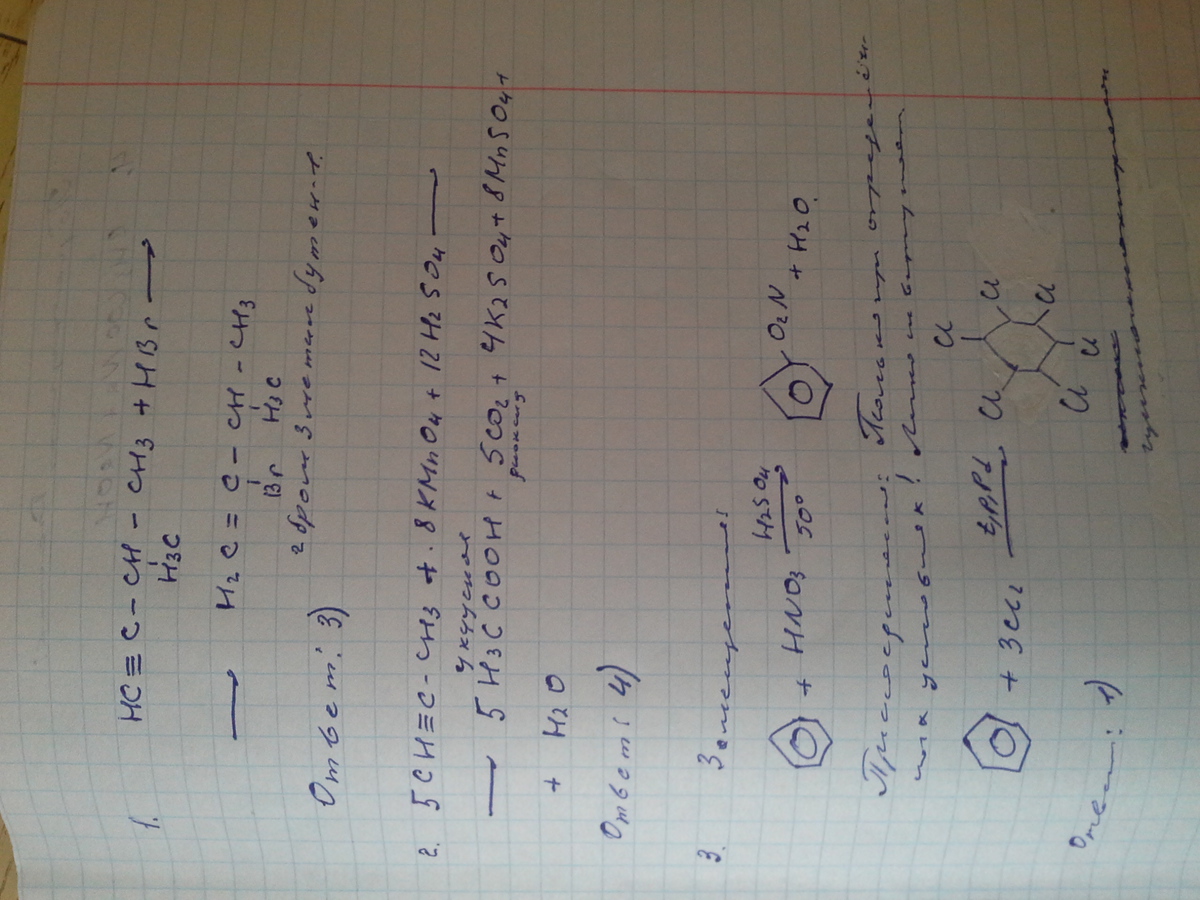 1. HC≡C-CH-CH3 + HBr ⟶
H3C
⟶ H2C=C-CH-CH3
Br H3C
2 бром 3 метил бутен-1.
Ответ: 3)
2. 5CH≡C-CH3 + 8KMnO4 + 12H2SO4 ⟶
уксусная
⟶ 5H3CCOOH + 5CO2 + 4K2SO4 + 8MnSO4 +
диоксид
+ H2O
Ответ: 4)
3. Замещение:
+ HNO3 H2SO4 ⟶ 50° O2N + H2O.
Присоединение: Только при определён-
ных условиях!
+ 3Cl2 t,p,Pd ⟶ Cl Cl Cl Cl Cl Cl
Ответ: 1)